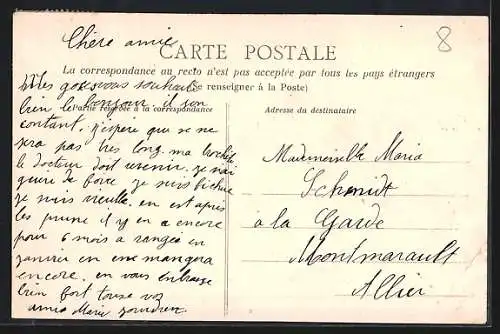 8
Chère amie
CARTE POSTALE
La correspondance au recto n'est pas acceptée par tous les pays étrangers
(Se renseigner à la Poste)
Partie réservée à la correspondance
Adresse du destinataire
vous souhaite
bien le bonjour. il son
contant. j'espère que se ne
sera pas très long. ma
le docteur doit venir. je n'ai
guère de force. je suis
je suis seulle. on est après
les prune il y en a encore
pour 6 mois a ranger en
janvier on en mangera
encore. en vous embrase
bien fort touse vos
amis Marie
Mademoiselle Maria
Schmidt
a la Garde
Montmarault
Allier